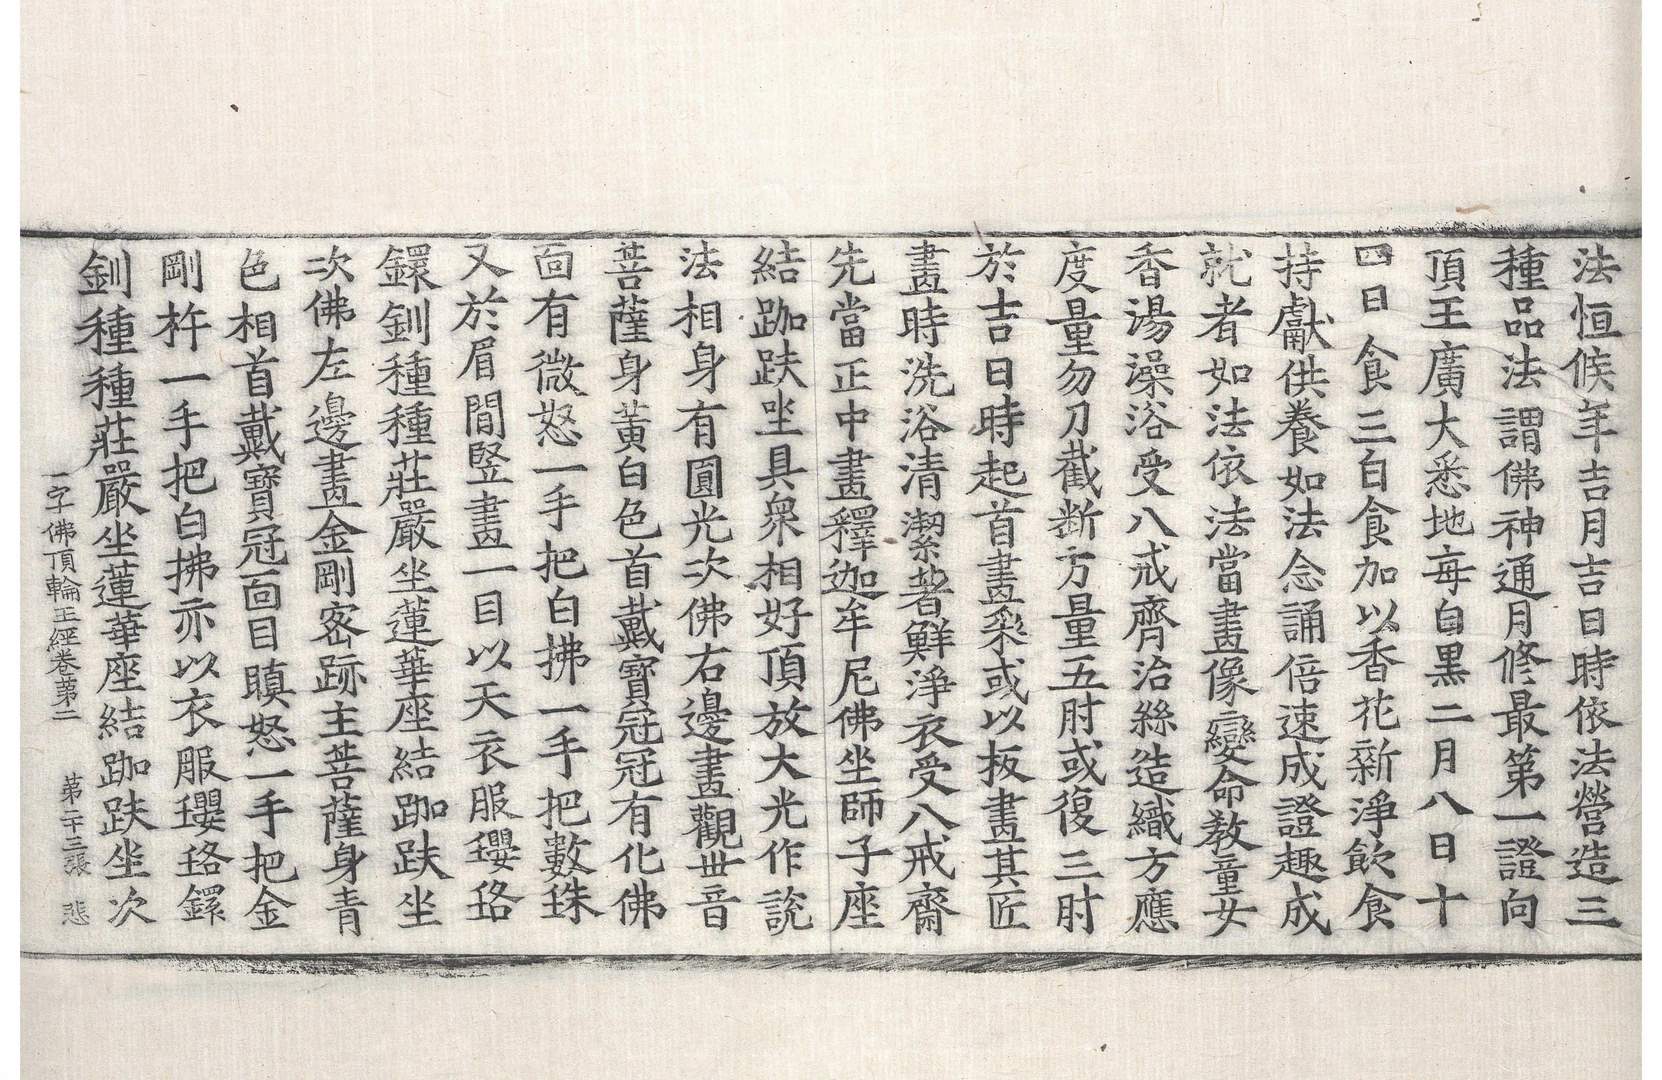 法恒候年吉月吉日時依法營造三
種品法謂佛神通月修最第一證向
頂王廣大悉地每白黒二月八日十
四日食三白食加以香花新淨飲食
持獻供養如法念誦倍速成證趣成
就者如法依法當畫像變命教童女
香湯澡浴受八戒齊治絲造織方應
度量勿刀截斷方量五肘或復三肘
於吉日時起首畫彩或以板畫其匠
畫時洗浴清潔著鮮淨衣受八戒齋
先當正中畫釋迦牟尼佛坐師子座
結跏趺坐具衆相好頂放大光作説
法相身有圓光次佛右邊畫觀世音
菩薩身黃白色首戴寶冠冠有化佛
面有微怒一手把白拂一手把數珠
又於眉間竪畫一目以天衣服瓔珞
鐶釧種種莊嚴坐蓮華座結跏趺坐
次佛左邊畫金剛密跡主菩薩身青
色相首戴寶冠面目瞋怒一手把金
剛杵一手把白拂亦以衣服瓔珞鐶
釧種種莊嚴坐蓮華座結跏趺坐次
一字佛頂輪王經卷苐二　苐二十三張　悲